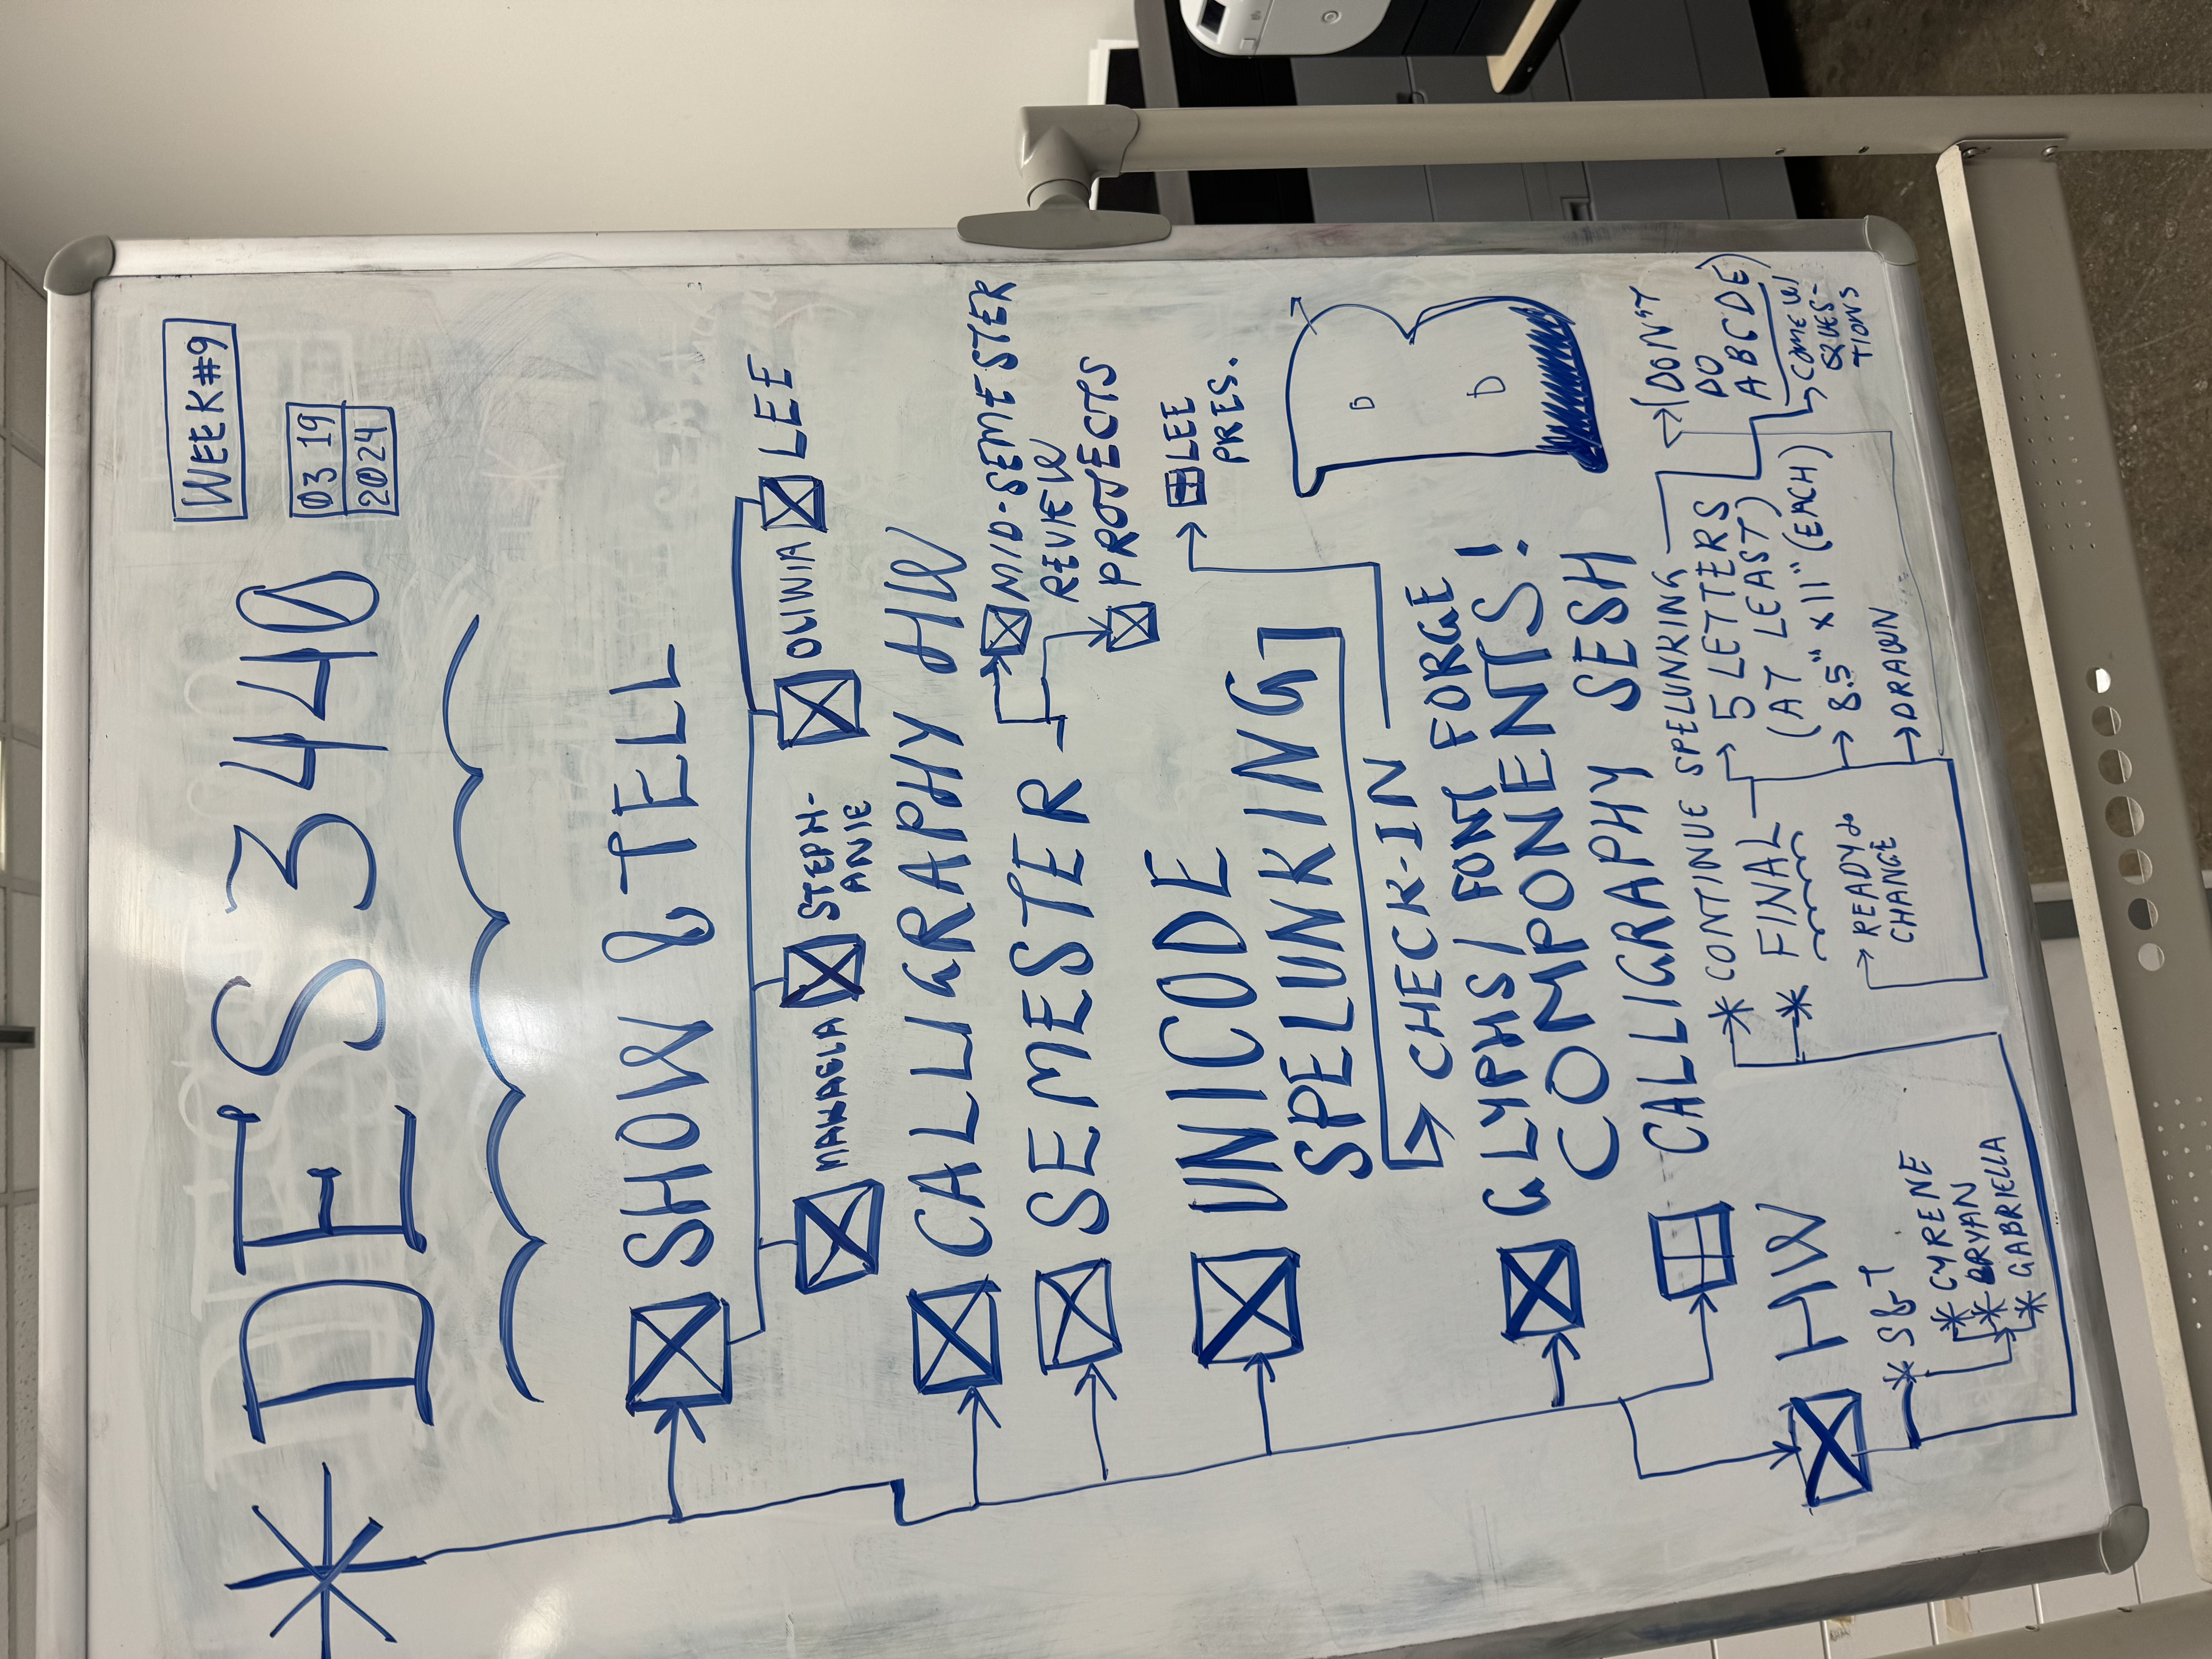 WEEK #9
* DES 3440
03 19
2024
SHOW & TELL
MANAELA
STEPH-
ANIE
OLIWIA
LEE
CALLIGRAPHY HW
SEMESTER
MID-SEMESTER
REVIEW
PROJECTS
UNICODE
SPELUNKING
LEE
PRES.
CHECK-IN
GLYPHS/FONT FORGE
COMPONENTS!
B
D
D
CALLIGRAPHY SESH
HW
* S&T
* CYRENE
* BRYAN
* GABRIELLA
* CONTINUE SPELUNKING
* FINAL
5 LETTERS
(AT LEAST)
8.5" x 11" (EACH)
DRAWN
READY to
CHANGE
(DON'T
DO
ABCDE)
COME W/
QUES-
TIONS